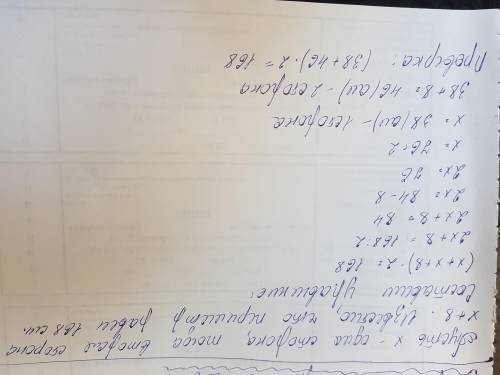 Пусть x - одна сторона, тогда вторая сторона
x+8. Известно, что периметр равен 168 см.
Составим уравнение:
(x+x+8)·2=168
2x+8=168:2
2x+8=84
2x=84-8
2x=76
x=76:2
x=38(см)-1 сторона
38+8=46(см)-2 сторона
Проверка: (38+46)·2=168